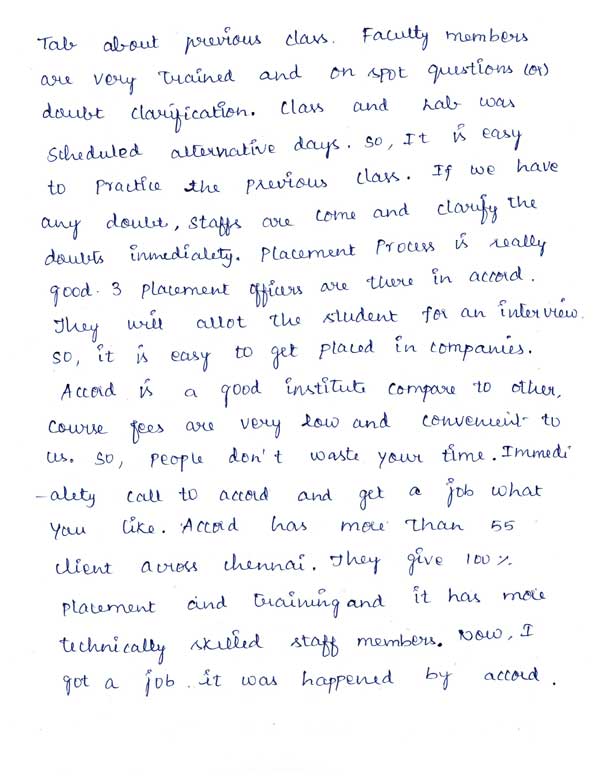 Tab about previous class. Faculty members
are very trained and on spot questions (or)
doubt clarification. Class and Lab was
scheduled alternative days. So, It is easy
to practice the previous class. If we have
any doubt, staffs are come and clarify the
doubts immedialety. Placement Process is really
good. 3 placement officers are there in accord.
They will allot the student for an interview.
So, it is easy to get placed in companies.
Accord is a good institute compare to other,
course fees are very low and convenient to
us. So, people don't waste your time. Immedi
-alety call to accord and get a job what
you like. Accord has more than 55
client across chennai. They give 100%
placement and training and it has more
technically skilled staff members. Now, I
got a job. it was happened by accord.